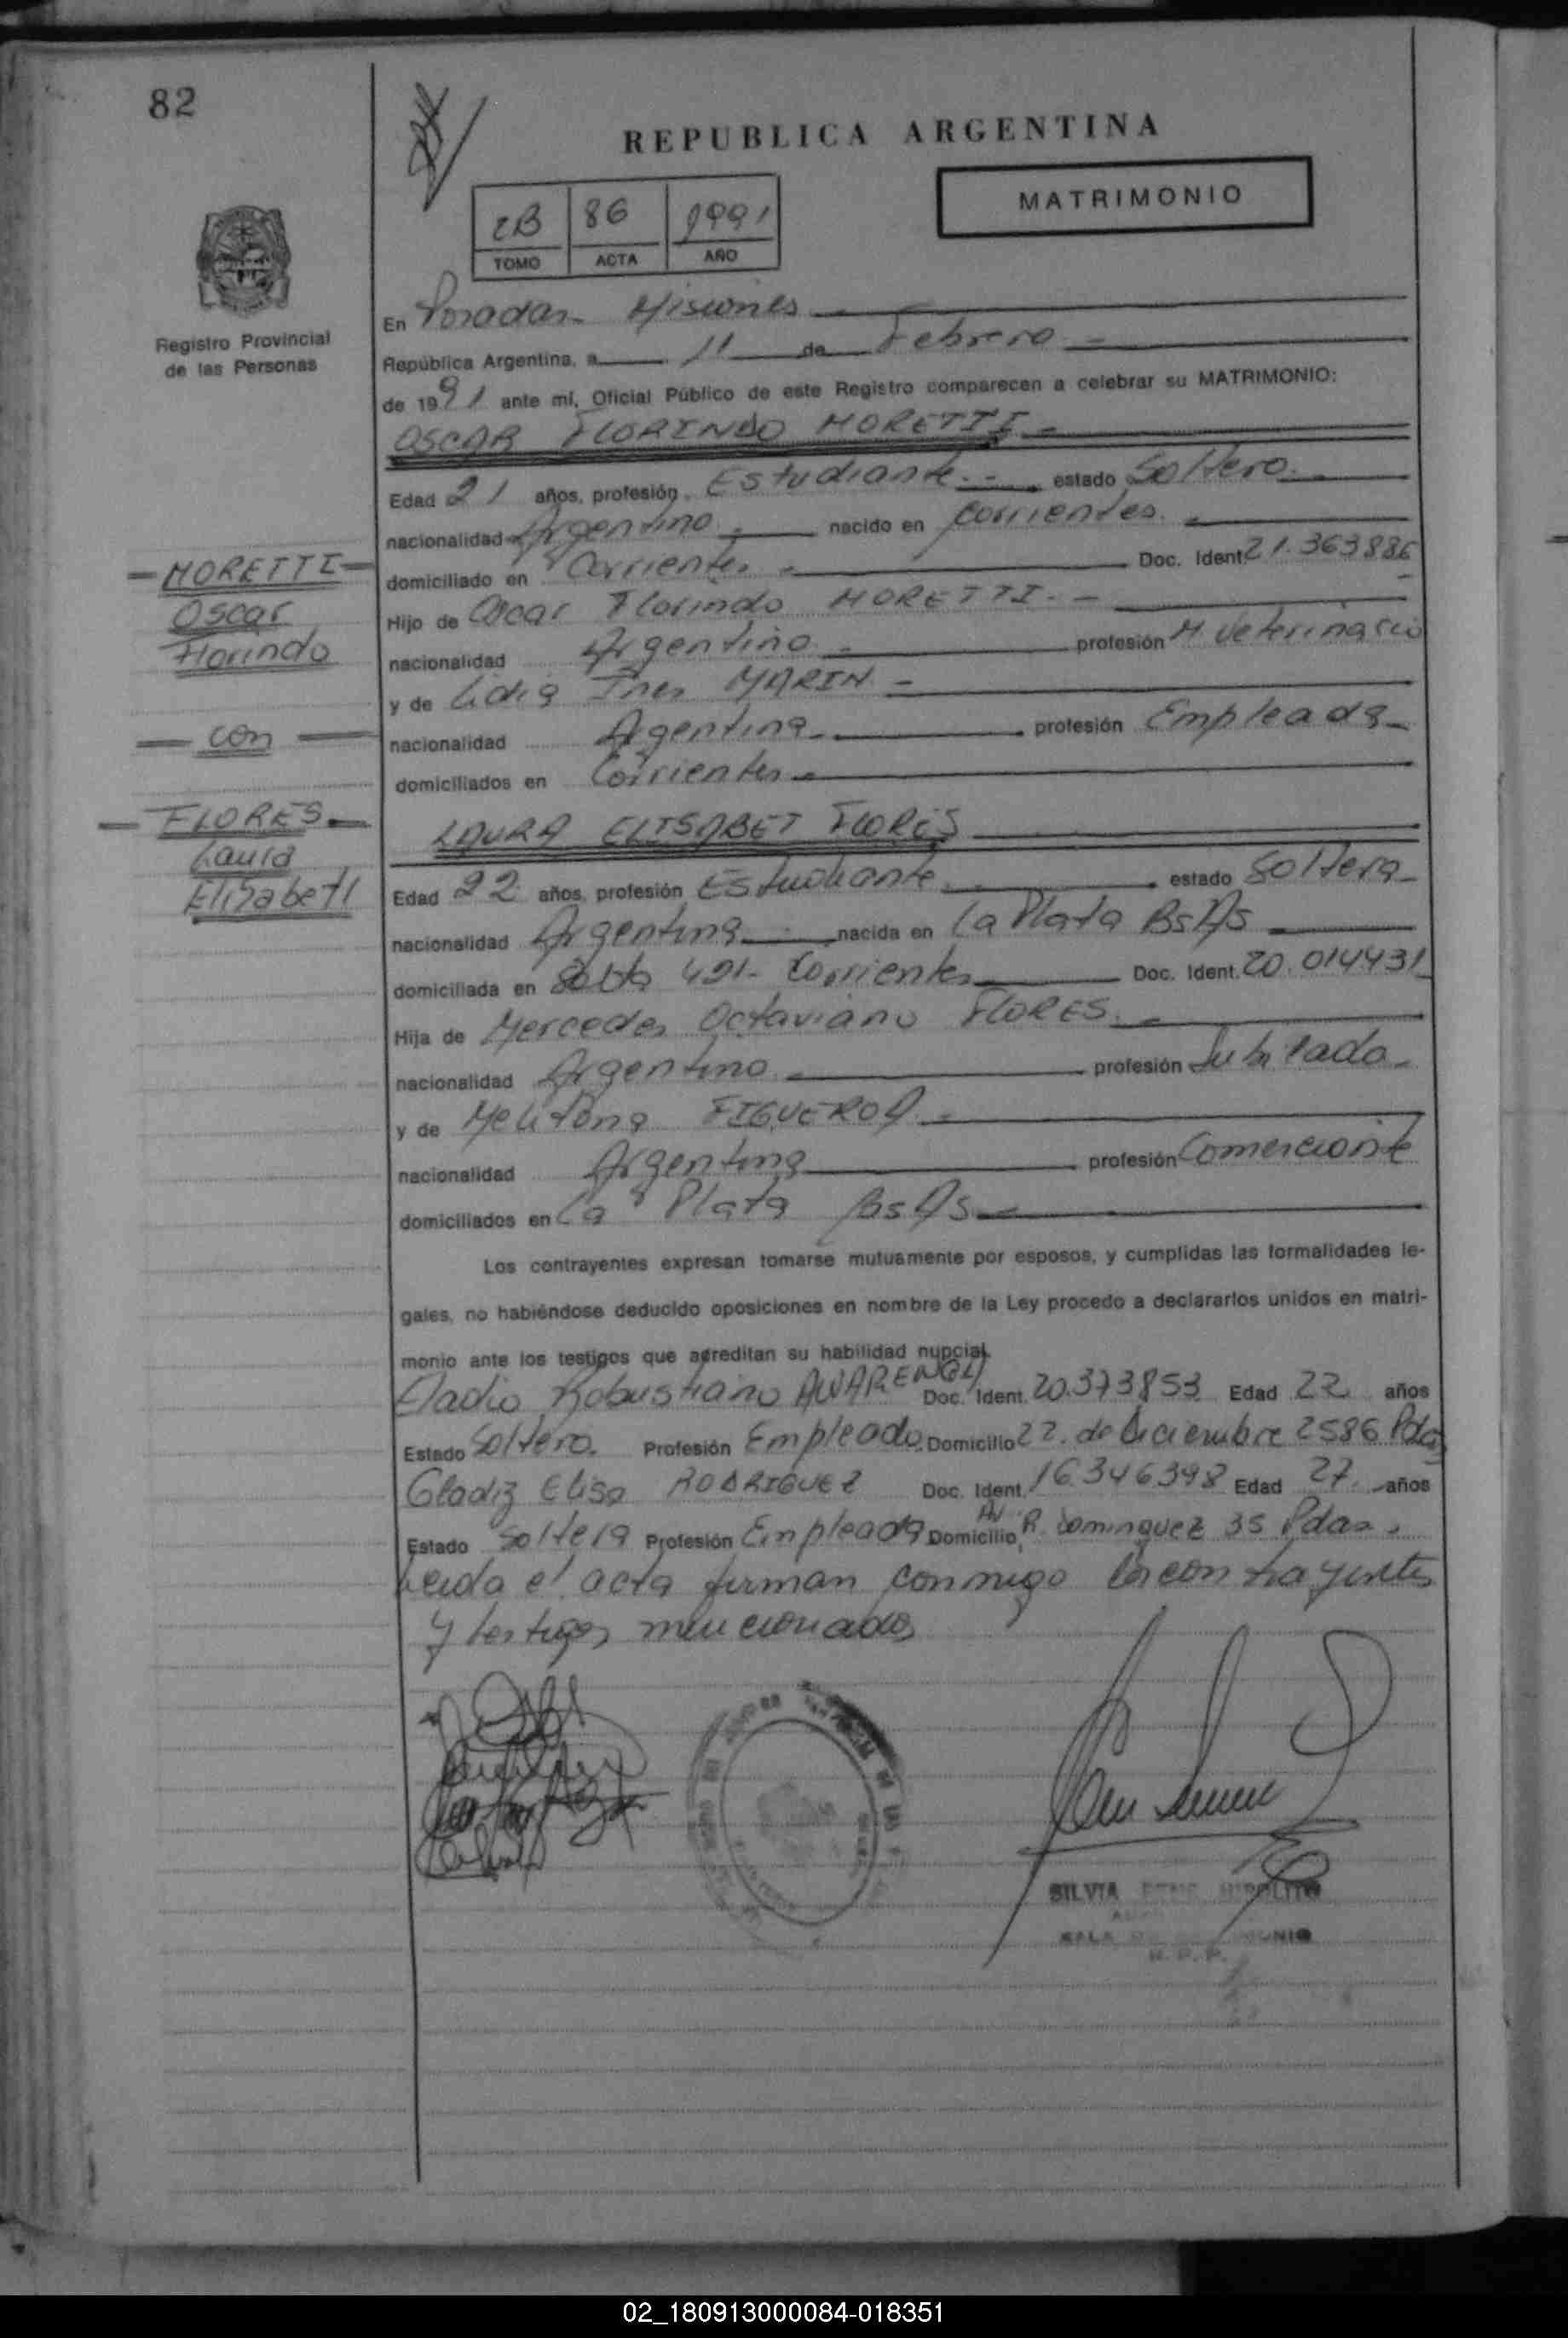 82
REPUBLICA ARGENTINA
MATRIMONIO
2B 86 1991
TOMO ACTA AÑO
Registro Provincial
de las Personas
En Posadas - Misiones
República Argentina, a 11 de Febrero
de 1991 ante mí, Oficial Público de este Registro comparecen a celebrar su MATRIMONIO:
OSCAR FLORINDO MORETTI
Edad 21 años, profesión Estudiante estado Soltero
nacionalidad Argentino nacido en Corrientes
domiciliado en Corrientes Doc. Ident. 21.363886
Hijo de Oscar Florindo MORETTI
nacionalidad Argentino profesión M. Veterinario
y de Lidia Ines MARIN
nacionalidad Argentina profesión Empleada
domiciliados en Corrientes
MORETTI
Oscar
Florindo
con
FLORES
Laura
Elisabet
LAURA ELISABET FLORES
Edad 22 años, profesión Estudiante estado Soltera
nacionalidad Argentina nacida en La Plata BsAs
domiciliada en Salta 421 - Corrientes Doc. Ident. 20.014431
Hija de Mercedes Octaviano FLORES
nacionalidad Argentino profesión Jubilado
y de Melitona FIGUEROA
nacionalidad Argentina profesión Comerciante
domiciliados en La Plata BsAs
Los contrayentes expresan tomarse mutuamente por esposos, y cumplidas las formalidades le-
gales, no habiéndose deducido oposiciones en nombre de la Ley procedo a declararlos unidos en matri-
monio ante los testigos que acreditan su habilidad nupcial.
Eladio Robustiano ALVARENGA Doc. Ident. 20.373853 Edad 22 años
Estado Soltero. Profesión Empleado Domicilio 22. de Diciembre 2586 Pdas
Gladiz Elisa RODRIGUEZ Doc. Ident. 16.346398 Edad 27 años
Estado Soltera Profesión Empleada Domicilio Av R. Dominguez 35 Pdas.
Leida el acta firman conmigo los contrayentes
y testigos mencionados
SILVIA HIPOLITO
SALA
R. P. P.
02_180913000084-018351